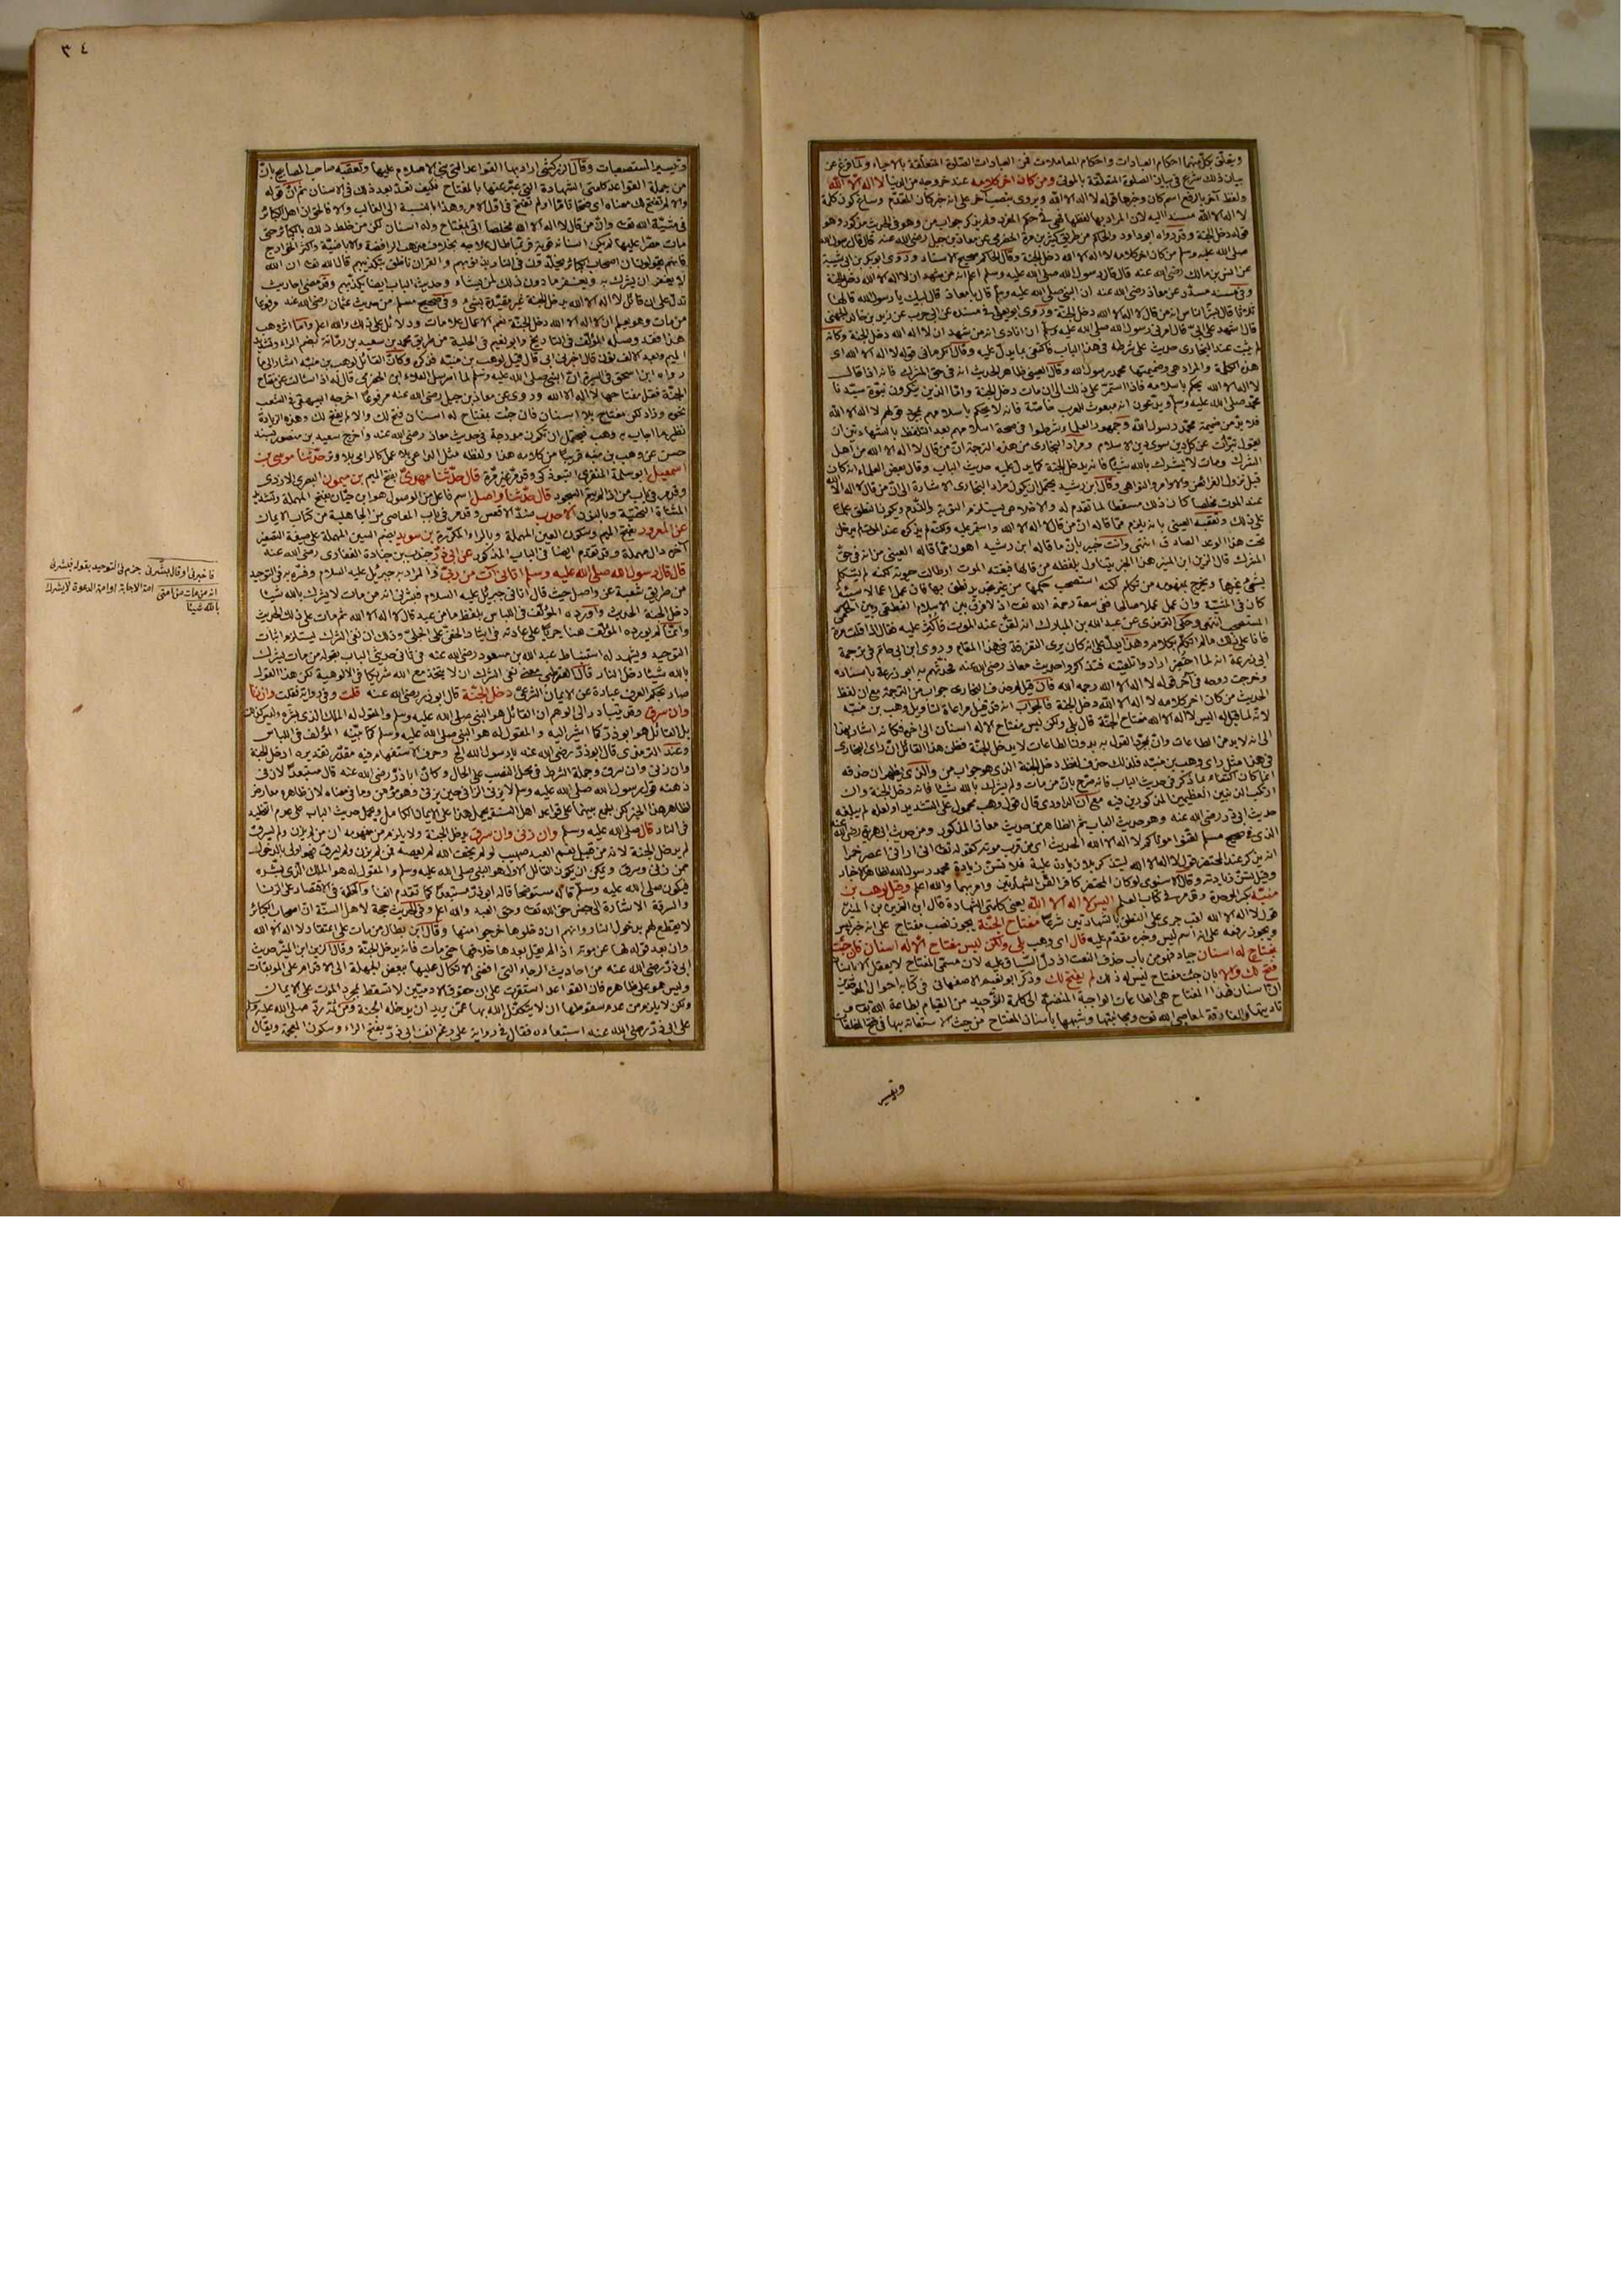 ويتعلق بكل منهما احكام العبادات واحكام المعاملات فمن العبادات الصلوة المتعلقة بالاحياء ولما فرغ عن
بيان ذلك شرع في بيان الصلوة المتعلقة بالموتى ومن كان اخر كلامه عند خروجه من الدنيا لا اله الا الله
ولفظ آخر بالرفع اسم كان وخبرها قوله لا اله الا الله ويروى بنصب آخر على انه خبر كان المقدم وساغ كون كلمة
لا اله الا الله مسندا اليه لان المراد بها لفظها فهي في حكم المفرد ولم يذكر جواب من وهو في الحديث مذكور وهو
قوله دخل الجنة وقد رواه ابو داود والحاكم من طريق كثير بن مرة الحضرمي عن معاذ بن جبل رضى الله عنه قال قال رسول الله
صلى الله عليه وسلم من كان اخر كلامه لا اله الا الله دخل الجنة وقال الحاكم صحيح الاسناد وروى ابو بكر بن ابي شيبة
عن انس بن مالك رضى الله عنه قال قال رسول الله صلى الله عليه وسلم اعلم انه من شهد ان لا اله الا الله دخل الجنة
وفي مسند مسدد عن معاذ رضى الله عنه ان النبي صلى الله عليه وسلم قال يا معاذ قال لبيك يا رسول الله قالها
ثلاثا قال بشر الناس انه من قال لا اله الا الله دخل الجنة وروى ابو يعلى في مسنده عن ابي حرب عن زيد بن خالد الجهني
قال اشهد على ابي قال امرني رسول الله صلى الله عليه وسلم ان انادى انه من شهد ان لا اله الا الله دخل الجنة وكانه
لم يثبت عند البخارى حديث على شرطه في هذا الباب فاكتفى بما يدل عليه وقال الكرماني قوله لا اله الا الله اى
هذه الكلمة والمراد هي وضميمتها محمد رسول الله وقال العيني ظاهر الحديث انه في حق المشرك فانه اذا قال
لا اله الا الله يحكم باسلامه فاذا استمر على ذلك الى ان مات دخل الجنة واما الذين ينكرون نبوة سيدنا
محمد صلى الله عليه وسلم او يدعون انه مبعوث للعرب خاصة فانه لا يحكم باسلامهم بمجرد قولهم لا اله الا الله
فلا بد من ضميمة محمد رسول الله وجمهور العلماء شرطوا في صحة اسلامهم بعد التلفظ بالشهادتين ان
يقول تبرأت عن كل دين سوى دين الاسلام ومراد البخارى من هذه الترجمة ان من قال لا اله الا الله من اهل
الشرك ومات لا يشرك بالله شيئا فانه يدخل الجنة كما يدل عليه حديث الباب وقال بعض العلماء انه كان
قبل نزول الفرائض والاوامر والنواهي وقال ابن رشيد يحتمل ان يكون مراد البخارى الاشارة الى ان من قال لا اله الا الله
عند الموت مخلصا كان ذلك مسقطا لما تقدم له والاخلاص يستلزم التوبة والندم ويكون النطق علما
على ذلك وتعقبه العيني بانه يلزم مما قاله ان من قال لا اله الا الله واستمر عليه ولكنه لم يذكره عند الموت لم يدخل
تحت هذا الوعد الصادق انتهى وانت خبير بان ما قاله ابن رشيد اهون مما قاله العيني من انه في حق
المشرك قال الزين ابن المنير هذا الخبر يتناول بلفظه من قالها فبغته الموت او طالت حيوته لكنه لم يتكلم
بشئ غيرها ويخرج بمفهومه من تكلم لكنه استصحب حكمها من غير تجديد نطق بها فان عمل اعمالا سيئة
كان في المشية وان عمل عملا صالحا فقي سعة رحمة الله تعالى اذ لا فرق بين الاسلام النطقي وبين الحكمي
المستصحب انتهى وحكى الترمذى عن عبد الله بن المبارك انه لقن عند الموت فاكثر عليه فقال اذا قلت مرة
فانا على ذلك مالم اتكلم بكلام وهذا يدل على انه كان يرى التفرقة في هذا المقام وروى ابن ابي حاتم في ترجمة
ابي زرعة انه لما احتضر ارادوا تلقينه فتذاكروا حديث معاذ رضى الله عنه فحدثهم به ابو زرعة باسناده
وخرجت روحه في آخر قوله لا اله الا الله رحمه الله فان قيل لم حذف البخارى جواب من الترجمة مع ان لفظ
الحديث من كان اخر كلامه لا اله الا الله دخل الجنة فالجواب انه قد قيل مراعاة لتاويل وهب بن منبه
لانه لما قيل له اليس لا اله الا الله مفتاح الجنة قال بلى ولكن ليس مفتاح الا له اسنان الى اخره فكانه اشار بهذا
الى انه لا بد من الطاعات وان مجرد القول به بدون الطاعات لا يدخل الجنة فظن هذا القائل ان راى البخارى
في هذا مثل راى وهب بن منبه فلذلك حذف لفظ دخل الجنة الذى هو جواب من والذى يظهر ان حذفه
انما كان اكتفاء بما ذكر في حديث الباب فانه صرح بان من مات ولم يشرك بالله شيئا فانه دخل الجنة وان
ارتكب الذنبين العظيمين المذكورين فيه مع ان الداودى قال قول وهب محمول على التشديد او لعله لم يبلغه
حديث ابي ذر رضى الله عنه وهو حديث الباب ثم الظاهر من حديث معاذ المذكور ومن حديث ابي هريرة رضى الله عنه
الذى في صحيح مسلم لقنوا موتاكم لا اله الا الله الحديث اى من قرب موته كقوله تعالى انى ارانى اعصر خمرا
انه يذكر عند المحتضر قول لا اله الا الله ليتذكر بلا زيادة عليه فلا تسن زيادة محمد رسول الله لظاهر الاخبار
وقيل تسن زيادته وقال الاسنوى لو كان المحتضر كافرا لقن الشهادتين وامر بهما والله اعلم وقيل لوهب بن
منبه بكسر الموحدة وقد مر في كتاب العلم اليس لا اله الا الله يعنى كلمتى الشهادة قال ابن الزين بن المنير
قول لا اله الا الله لقب جرى على النطق بالشهادتين شرعا مفتاح الجنة يجوز نصب مفتاح على انه خبر ليس
ويجوز رفعه على انه اسم ليس وخبره مقدم عليه قال اى وهب بلى ولكن ليس مفتاح الا له اسنان فان جئت
بمفتاح له اسنان جياد فهو من باب حذف النعت اذ دل السياق عليه لان مسمى المفتاح لا يعقل الا بالاسنان
فتح لك والا بان جئت بمفتاح ليس له ذلك لم يفتح لك وذكر ابو نعيم الاصفهانى في كتابه احوال الموحدين
ان اسنان هذا المفتاح هي الطاعات الواجبة المنضمة الى كلمة التوحيد من القيام بطاعة الله تعالى و
تاديتها والمفارقة لمعاصي الله تعالى ومجانبتها وشبهها باسنان المفتاح من حيث الاستعانة بها في فتح المغلقات
وتيسير
٣٤
وتيسير المستصعبات وقال الزركشى اراد بها القواعد التى بنى الاسلام عليها وتعقبه صاحب المصابيح بان
من جملة القواعد كلمتى الشهادة التى عبر عنها بالمفتاح فكيف تعد بعد ذلك في الاسنان ثم ان قوله
والا لم يفتح لك معناه اى فتحا تاما او لم تفتح في اول الامر وهذا بالنسبة الى الغالب والا فالحق ان اهل الكبائر
في مشية الله تعالى وان من قال لا اله الا الله مخلصا اتى بمفتاح وله اسنان لكن من خلط ذلك بالكبائر حتى
مات مصرا عليها لم يكن اسنانه قوية فربما طال علاجه بخلاف مذهب الرافضة والاباضية واكثر الخوارج
فانهم يقولون ان اصحاب الكبائر يخلدون في النار بذنوبهم والقران ناطق بتكذيبهم قال الله تعالى ان الله
لا يغفر ان يشرك به ويغفر ما دون ذلك لمن يشاء وحديث الباب ايضا يكذبهم وقد مضى احاديث
تدل على ان قائل لا اله الا الله يدخل الجنة غير مقيدة بشئ وفي صحيح مسلم من حديث عثمان رضى الله عنه مرفوعا
من مات وهو يعلم ان لا اله الا الله دخل الجنة نعم الاعمال علامات ودلائل على ذلك والله اعلم واما اثر وهب
هذا فقد وصله المؤلف في التاريخ وابو نعيم في الحلية من طريق محمد بن سعيد بن رمانة بضم الراء وتشديد
الميم وبعد الالف نون قال اخبرنى ابى قال قيل لوهب بن منبه فذكره وكان القائل لوهب بن منبه اشار الى ما
رواه ابن اسحق في السيرة ان النبي صلى الله عليه وسلم لما ارسل العلاء ابن الحضرمى قال له اذا سئلت عن مفتاح
الجنة فقل مفتاحها لا اله الا الله وروى عن معاذ بن جبل رضى الله عنه مرفوعا اخرجه البيهقى في الشعب
نحوه وزاد لكن مفتاح بلا اسنان فان جئت بمفتاح له اسنان فتح لك والا لم يفتح لك وهذه الزيادة
نظير ما اجاب به وهب فيحتمل ان تكون مدرجة في حديث معاذ رضى الله عنه واخرج سعيد بن منصور بسند
حسن عن وهب بن منبه قريبا من كلامه هذا ولفظه مثل الداعى بلا عمل كالرامى بلا وتر حدثنا موسى بن
اسمعيل ابو سلمة المنقرى التبوذكى وقد مر غير مرة قال حدثنا مهدى بفتح الميم بن ميمون البصرى الازدى
وقد مر في باب من اذا لم يتم السجود قال حدثنا واصل اسم فاعل من الوصول هو ابن حيان بفتح المهملة وتشديد
المثناة التحتية وبالنون الاحدب ضد الاقعس وقد مر في باب المعاصى من الجاهلية من كتاب الايمان
عن المعرور بفتح الميم وسكون العين المهملة وبالراء المكررة بن سويد بضم السين المهملة على صيغة التصغير
آخره دال مهملة وقد تقدم ايضا في الباب المذكور عن ابى ذر جندب بن جنادة الغفارى رضى الله عنه
قال قال رسول الله صلى الله عليه وسلم اتانى آت من ربى والمراد به جبرئيل عليه السلام وفسره به في التوحيد
من طريق شعبة عن واصل حيث قال اتانى جبرئيل عليه السلام فبشرنى انه من مات لا يشرك بالله شيئا
دخل الجنة الحديث واورده المؤلف في اللباس بلفظ ما من عبد قال لا اله الا الله ثم مات على ذلك الحديث
وانما لم يورده المؤلف هنا جريا على عادته في ايثار الخفى على الجلى وذلك ان نفى الشرك يستلزم اثبات
التوحيد ويشهد له استنباط عبد الله بن مسعود رضى الله عنه في ثانى حديثى الباب بقوله من مات يشرك
بالله شيئا دخل النار قال القرطبى معنى نفى الشرك ان لا يتخذ مع الله شريكا في الالوهية لكن هذا القول
صار بحكم العرف عبارة عن الايمان الشرعى دخل الجنة قال ابو ذر رضى الله عنه قلت وفي رواية فقلت وان زنا
وان سرق وقد يتبادر الى الوهم ان القائل هو النبى صلى الله عليه وسلم والمقول له الملك الذى بشره وليس كذلك
بل القائل هو ابو ذر كما اشير اليه والمقول له هو النبى صلى الله عليه وسلم كما بينه المؤلف في اللباس
وعند الترمذى قال ابو ذر رضى الله عنه يا رسول الله الخ وحرف الاستفهام فيه مقدر تقديره ادخل الجنة
وان زنى وان سرق وجملة الشرط في محل النصب على الحال وكان ابا ذر رضى الله عنه قال مستبعدا لان في
ذهنه قول رسول الله صلى الله عليه وسلم لا يزنى الزانى حين يزنى وهو مؤمن وما في معناه لان ظاهره معارض
لظاهر هذا الخبر لكن يجمع بينهما على قواعد اهل السنة بحمل هذا على الايمان الكامل وبحمل حديث الباب على عدم التخليد
في النار قال صلى الله عليه وسلم وان زنى وان سرق يدخل الجنة ولا يلزم من مفهومه ان من لم يزن ولم يسرق
لم يدخل الجنة لانه من قبيل نعم العبد صهيب لو لم يخف الله لم يعصه فمن لم يزن ولم يسرق فهو اولى بالدخول
ممن زنى وسرق ويمكن ان يكون القائل الاول هو النبى صلى الله عليه وسلم والمقول له هو الملك الذى بشره
فيكون صلى الله عليه وسلم قاله مستوضحا قاله ابو ذر مستبعدا كما تقدم انفا والنكتة في الاقتصار على الزنا
والسرقة الاشارة الى جنس حق الله تعالى وحق العبد والله اعلم وفي الحديث حجة لاهل السنة ان اصحاب الكبائر
لا يقطع لهم بدخول النار وانهم ان دخلوها خرجوا منها وقال ابن بطال من مات على اعتقاد لا اله الا الله
وان بعد قوله لها عن موته اذا لم يقل بعدها خلافها حتى مات فانه يدخل الجنة وقال الزين ابن المنير حديث
ابى ذر رضى الله عنه من احاديث الرجاء التى افضى الاتكال عليها ببعض الجهلة الى الاقدام على الموبقات
وليس هو على ظاهره فان القواعد استقرت على ان حقوق الادميين لا تسقط بمجرد الموت على الايمان
ولكن لا يلزم من عدم سقوطها ان لا يتكفل الله بها عمن يريد ان يدخله الجنة ومن ثمه رد صلى الله عليه وسلم
على ابى ذر رضى الله عنه استبعاده فقال في رواية على رغم انف ابى ذر بفتح الراء وسكون المعجمة ويقال
فاخبرنى او قال بشرنى جزم في التوحيد بقوله فبشرنى
انه من مات من امتى امة الاجابة او امة الدعوة لا يشرك
بالله شيئا